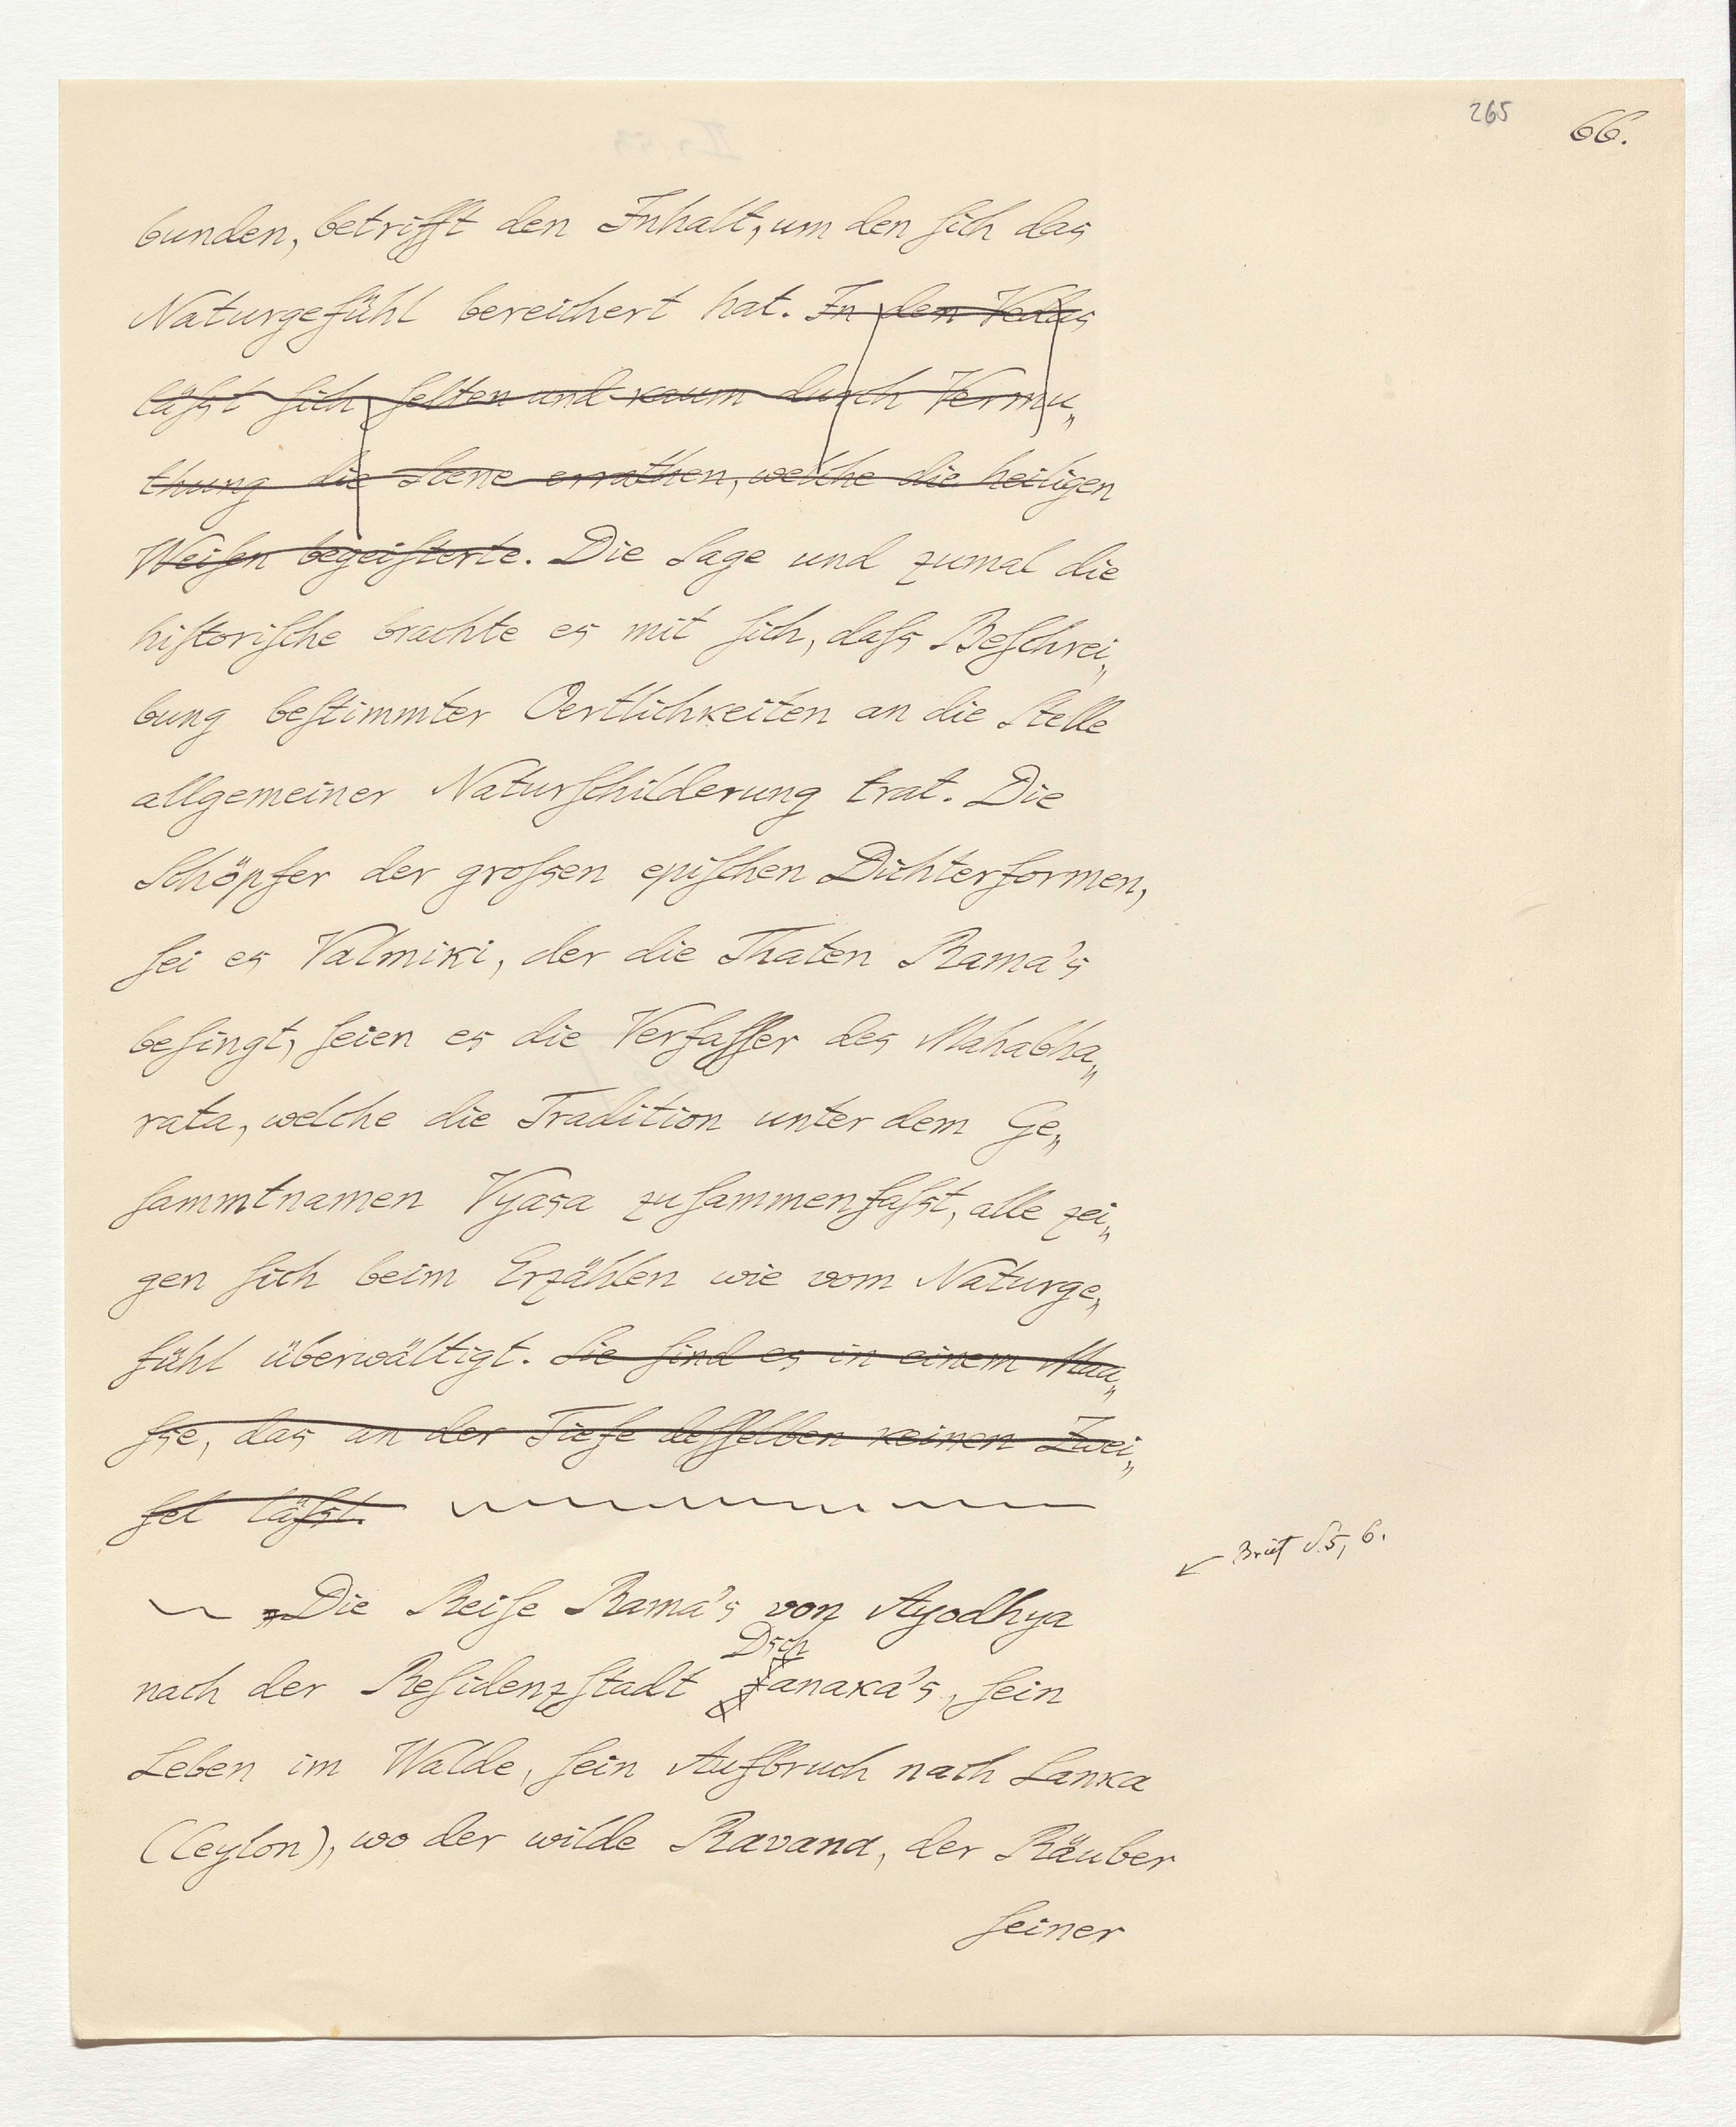 265 66.
bunden, betrifft den Inhalt, um den ſich das
Naturgefühl bereichert hat. In den Vedas
läſst ſich ſelten und kaum durch Vermu„
thung die Scene errathen, welche die heiligen
Weiſen begeiſterte. Die Sage und zumal die
hiſtoriſche brachte es mit ſich, daſs Beſchrei„
bung beſtimmter Oertlichkeiten an die Stelle
allgemeiner Naturſchilderung trat. Die
Schöpfer der groſsen epiſchen Dichterformen,
ſei es Valmiki, der die Thaten Rama's
beſingt, ſeien es die Verfaſſer des Mahabha„
rata, welche die Tradition unter dem Ge„
ſammtnamen Vyasa zuſammenfaſst, alle zei„
gen ſich beim Erzählen wie vom Naturge„
fühl überwältigt. Sie ſind es in einem Maa„
ſse, das an der Tiefe deſſelben keinen Zwei„
fel läſst.
Brief S. 5, 6.
„Die Reiſe Rama's von Ayodhya
Dsch
nach der Reſidenzſtadt anaka's, ſein
Leben im Walde, ſein Aufbruch nach Lanka
(Ceylon), wo der wilde Ravana, der Räuber
ſeiner